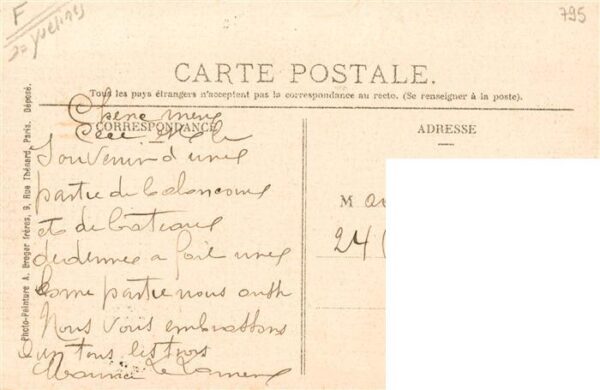 F
Yvelines
795
CARTE POSTALE.
Tous les pays étrangers n'acceptent pas la correspondance au recto. (Se renseigner à la poste).
CORRESPONDANCE
ADRESSE
Souvenir d'une
partie de balancoire
et de bateaux
a fait une
bonne partie nous aussi
Nous vous embrassons
tous les trois
Maurice
M
24
Photo-Peinture A. Breger frères, 9, Rue Thénard, Paris. Déposé.